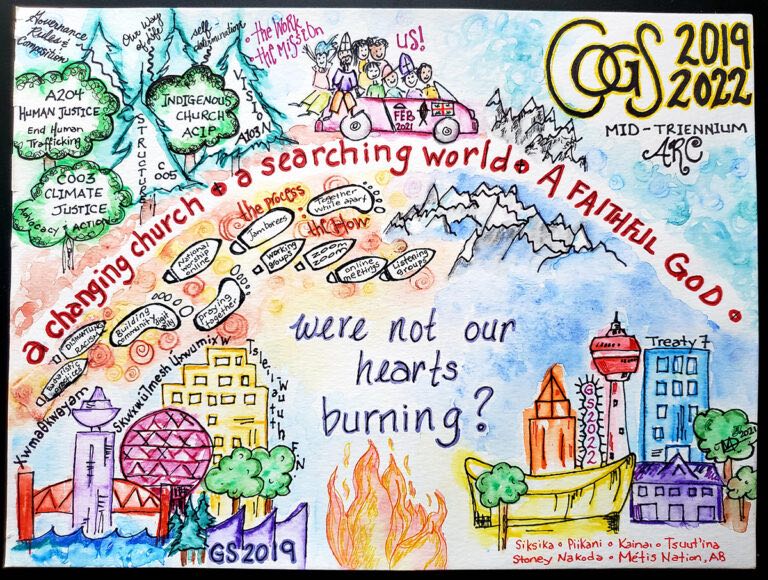 Governance
Rules &
Composition
Our Way
of Life
self-
determination
• the WORK
• the MISSION
US!
COGS 2019
2022
MID-TRIENNIUM
ARC
A204
HUMAN JUSTICE
End Human
Trafficking
INDIGENOUS
CHURCH
ACIP
VISION
A103
STRUCTURE
C005
FEB
2021
C003
CLIMATE
JUSTICE
Advocacy + Action
a changing church • a searching world • A FAITHFUL GOD •
the process
the flow
Together
while apart
Jamborees
National
worship
online
working
groups
zoom
zoom
online
meetings
Listening
groups
praying
together
Building
community
DISMANTLING
RACISM
practices
were not our
hearts
burning?
xwməθkwəy̓əm
Skwxwú7mesh Úxwumixw
Tsleil-Waututh FN
GS2019
Treaty 7
GS2022
2021
Siksika • Piikani • Kainai • Tsuut'ina
Stoney Nakoda • Métis Nation, AB